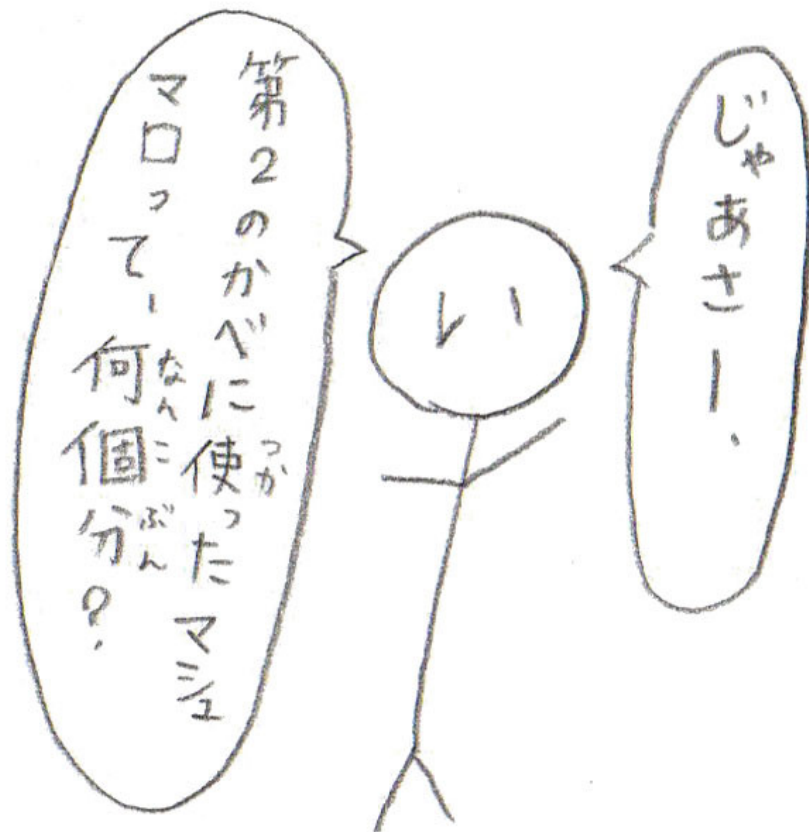 じゃあさー、
第2のかべに使ったマシュ
マロって、何個分？
つか
なんこぶん
い